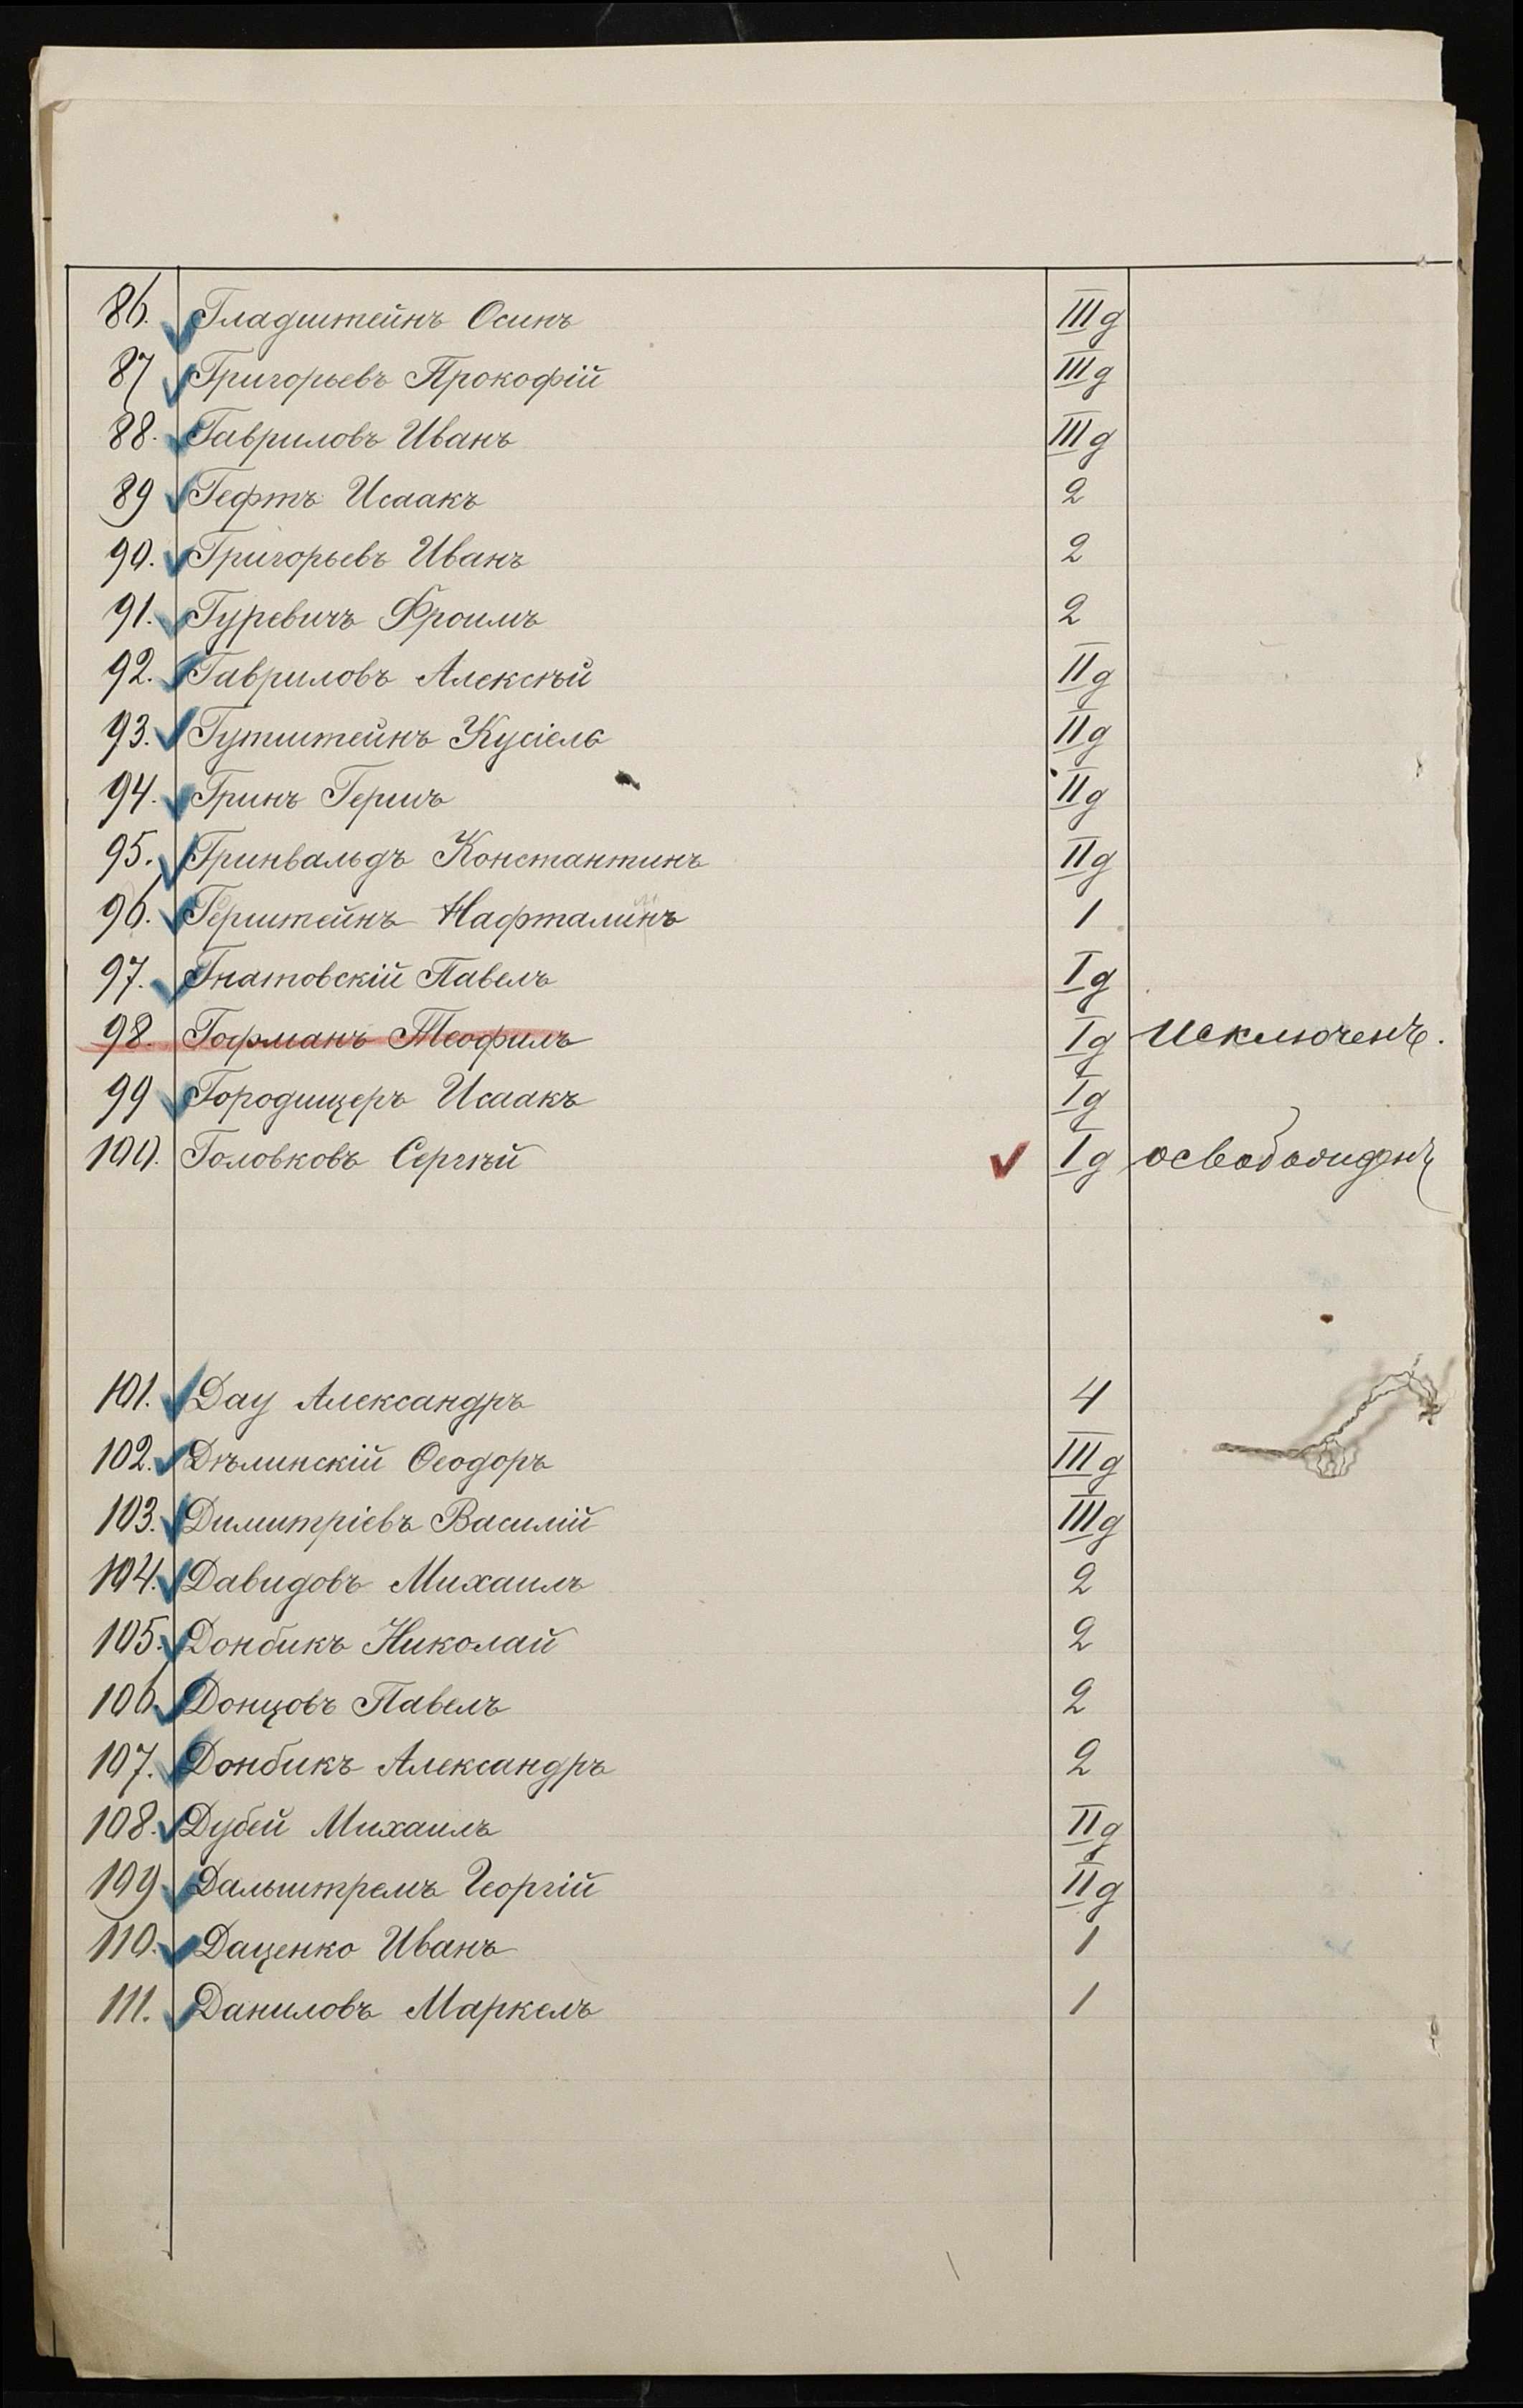 86. Гладштейнъ Осипъ IIIд
87 Григорьевъ Прокофій IIIд
88. Гавриловъ Иванъ IIIд
89 Гефтъ Исаакъ 2
90. Григорьевъ Иванъ 2
91. Гуревичъ Фроимъ 2
92. Гавриловъ Алексѣй IIд
93. Гутштейнъ Кусіель IIд
94. Гринъ Гершъ IIд
95. Гринвальдъ Константинъ IIд
96. Герштейнъ Нафталинъ 1
97. Гнатовскій Павелъ Iд
98. Гофманъ Теофилъ Iд Исключенъ.
99 Городищеръ Исаакъ Iд
100. Головковъ Сергѣй Iд освобожденъ
101. Дау Александръ 4
102. Дѣлинскій Ѳеодоръ IIIд
103. Димитріевъ Василій IIIд
104. Давидовъ Михаилъ 2
105. Донбикъ Николай 2
106. Донцовъ Павелъ 2
107. Донбикъ Александръ 2
108. Дубей Михаилъ IIд
109 Дальштремъ Георгій IIд
110. Даценко Иванъ 1
111. Даниловъ Маркелъ 1